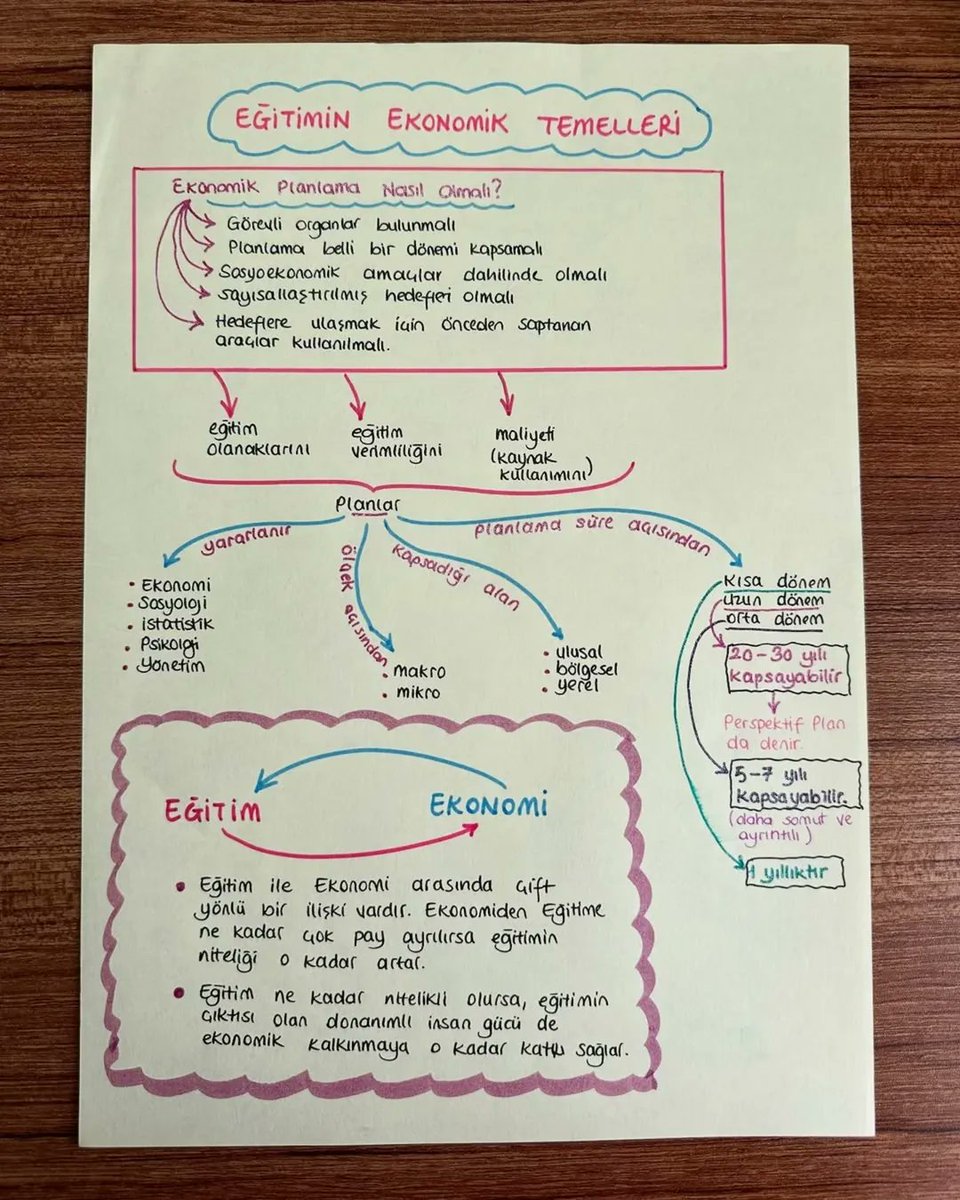 EĞİTİMİN EKONOMİK TEMELLERİ
Ekonomik Planlama Nasıl Olmalı?
Görevli organlar bulunmalı
Planlama belli bir dönemi kapsamalı
Sosyoekonomik amaçlar dahilinde olmalı
Sayısallaştırılmış hedefleri olmalı
Hedeflere ulaşmak için önceden saptanan
araçlar kullanılmalı.
eğitim
olanaklarını
eğitim
verimliliğini
maliyeti
(kaynak
kullanımını)
Planlar
yararlanır
• Ekonomi
• Sosyoloji
• istatistik
• Psikoloji
• Yönetim
ölçek açısından
• makro
• mikro
kapsadığı alan
• ulusal
• bölgesel
• yerel
planlama süre açısından
Kısa dönem
uzun dönem
orta dönem
20-30 yılı
kapsayabilir
Perspektif Plan
da denir.
5-7 yılı
kapsayabilir.
(daha somut ve
ayrıntılı)
1 yıllıktır
EĞİTİM
EKONOMİ
• Eğitim ile Ekonomi arasında çift
yönlü bir ilişki vardır. Ekonomiden Eğitime
ne kadar çok pay ayrılırsa eğitimin
niteliği o kadar artar.
• Eğitim ne kadar nitelikli olursa, eğitimin
çıktısı olan donanımlı insan gücü de
ekonomik kalkınmaya o kadar katkı sağlar.